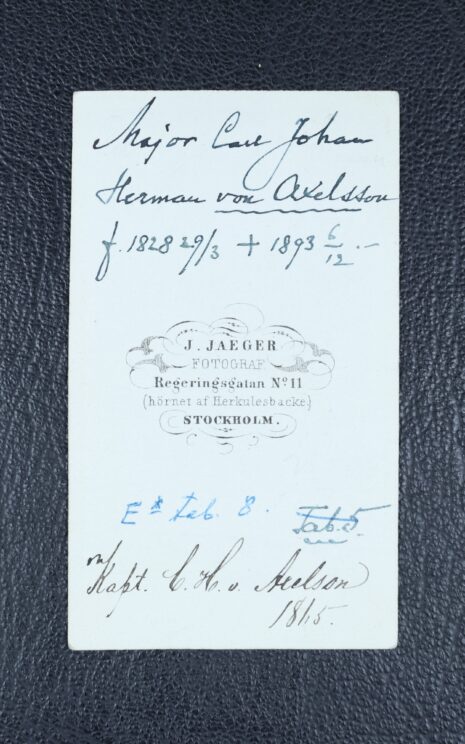 Major Carl Johan
Herman von Axelsson
f. 1828 29/3 + 1893 6/12.-
J. JAEGER
FOTOGRAF
Regeringsgatan No 11
(hörnet af Herkulesbacke)
STOCKHOLM.
Ex Tab. 8. Tab. 5
Kapt. C. H. v. Axelson
1865.